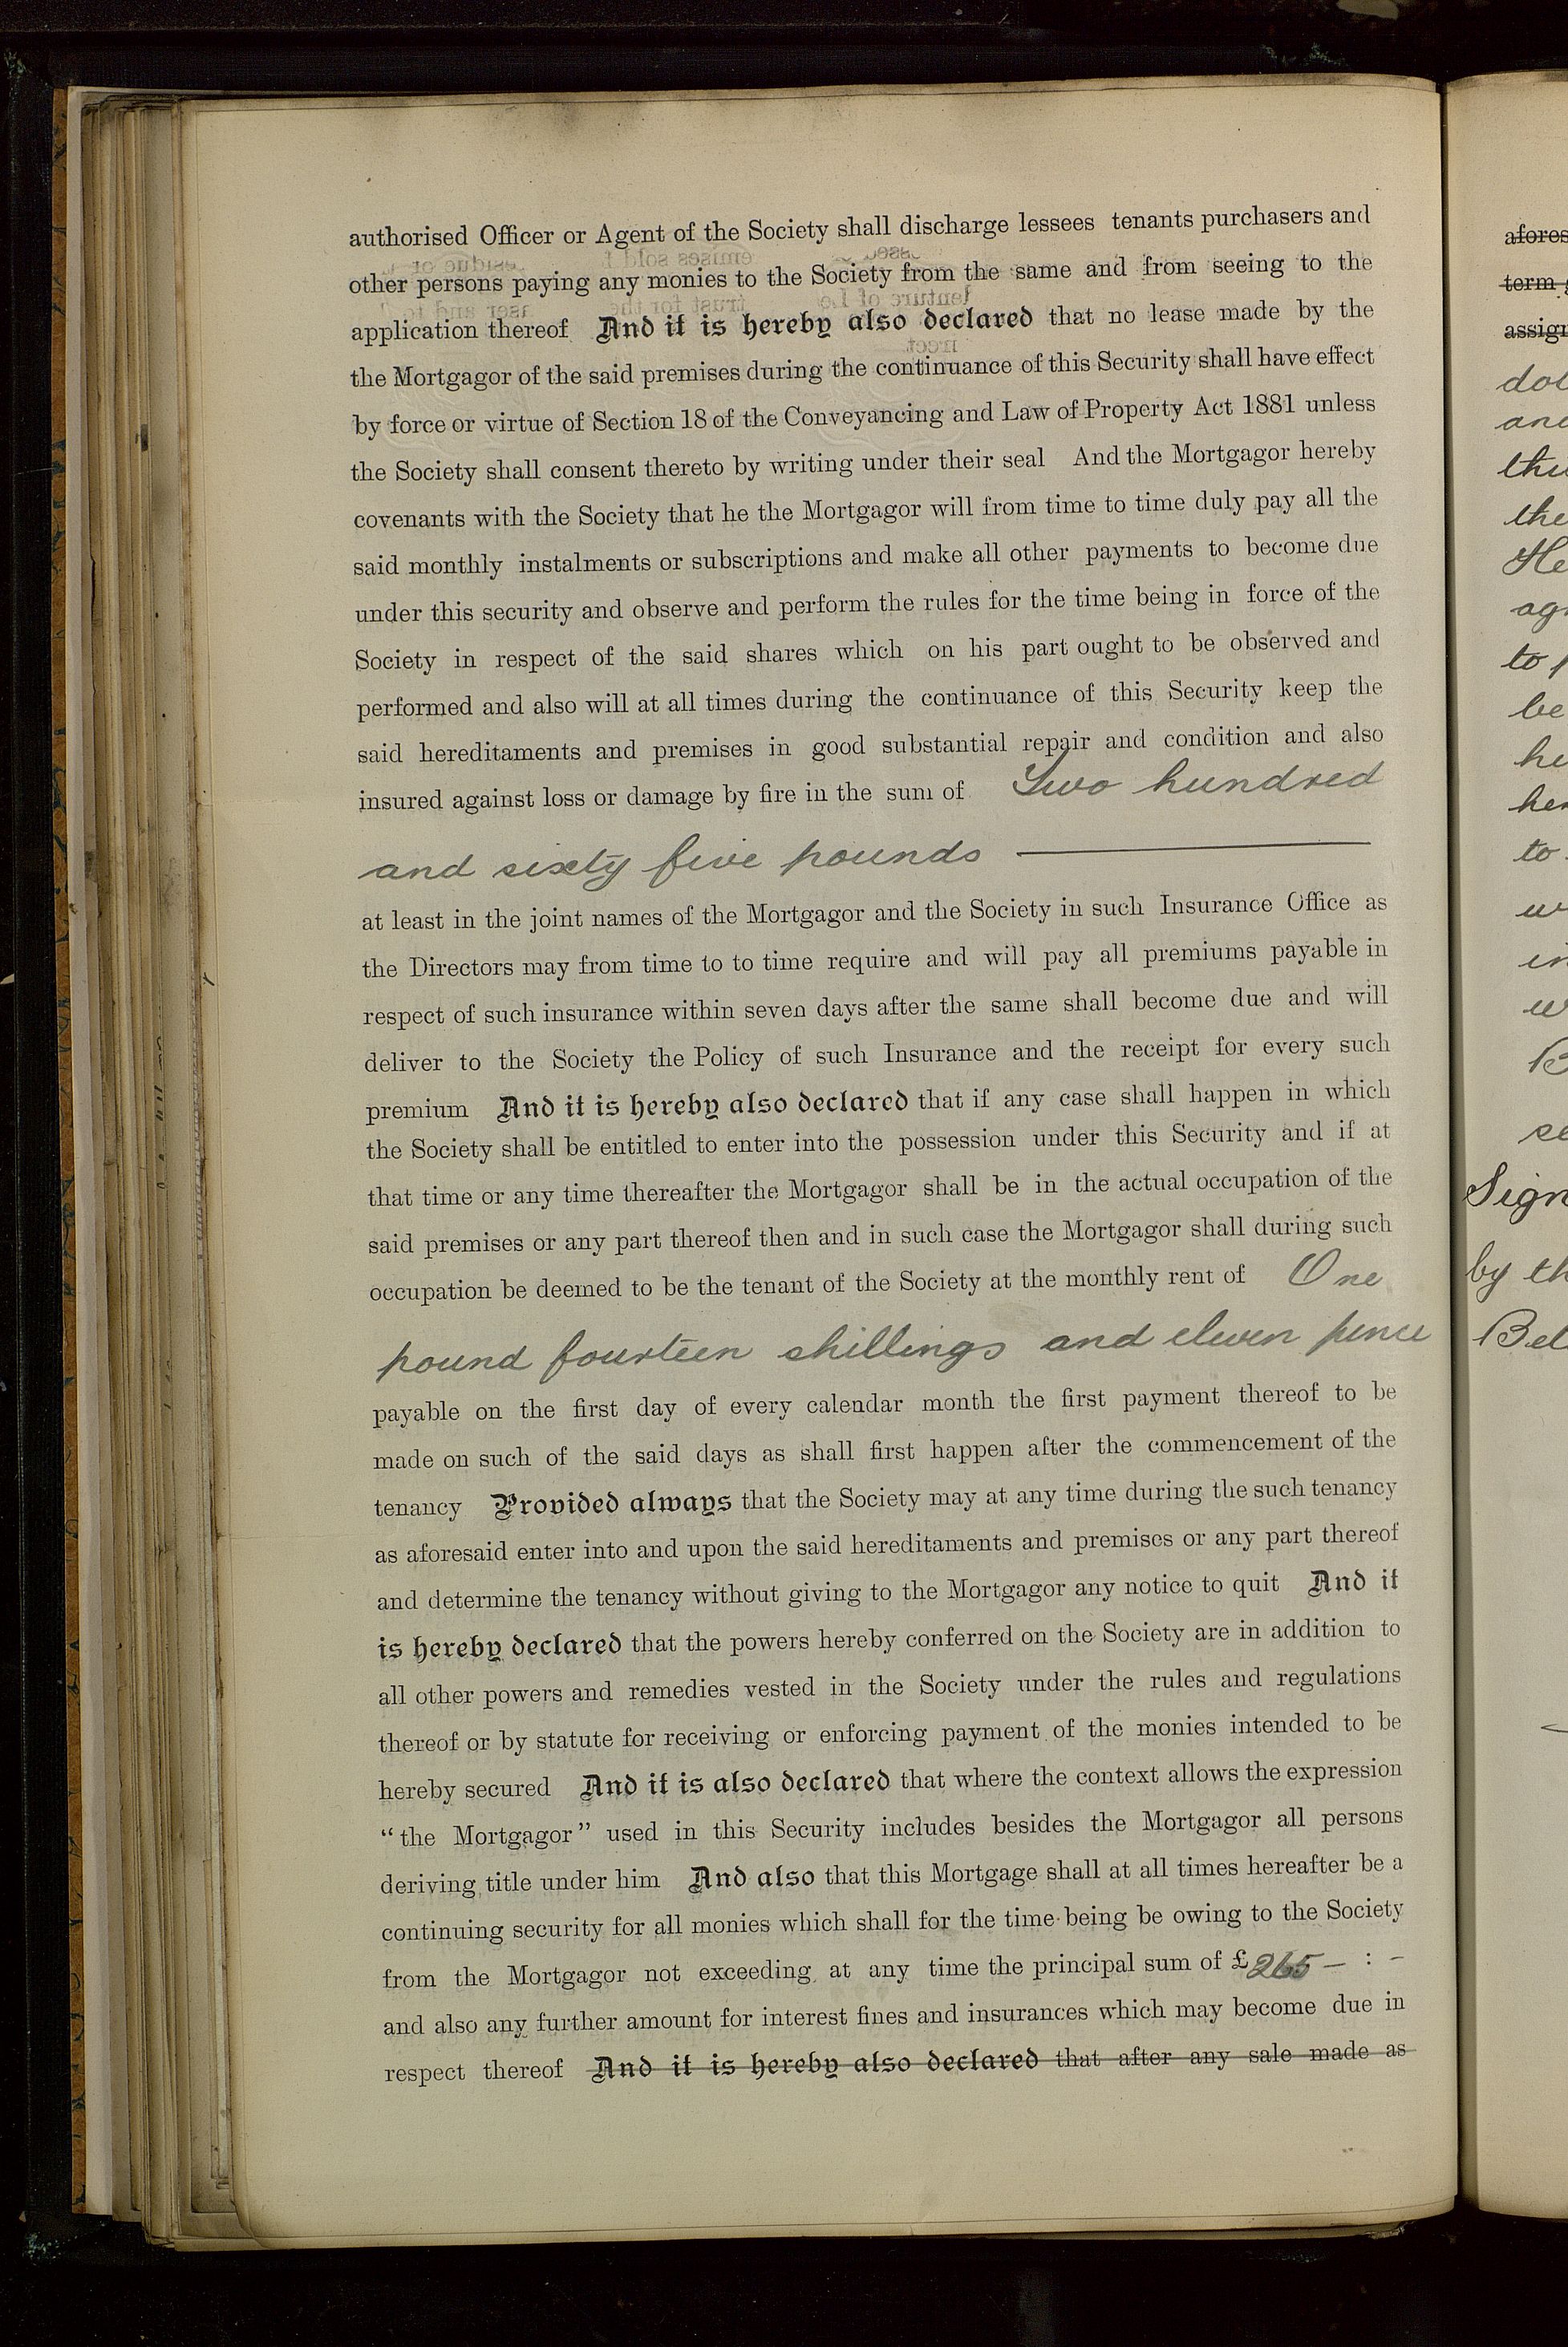 authorised Officer or Agent of the Society shall discharge lessees tenants purchasers and
other persons paying any monies to the Society from the same and from seeing to the
application thereof And it is hereby also declared that no lease made by the
the Mortgagor of the said premises during the continuance of this Security shall have effect
by force or virtue of Section 18 of the Conveyancing and Law of Property Act 1881 unless
the Society shall consent thereto by writing under their seal And the Mortgagor hereby
covenants with the Society that he the Mortgagor will from time to time duly pay all the
said monthly instalments or subscriptions and make all other payments to become due
under this security and observe and perform the rules for the time being in force of the
Society in respect of the said shares which on his part ought to be observed and
performed and also will at all times during the continuance of this Security keep the
said hereditaments and premises in good substantial repair and condition and also
insured against loss or damage by fire in the sum of Two hundred
and sixty five pounds
at least in the joint names of the Mortgagor and the Society in such Insurance Office as
the Directors may from time to to time require and will pay all premiums payable in
respect of such insurance within seven days after the same shall become due and will
deliver to the Society the Policy of such Insurance and the receipt for every such
premium And it is hereby also declared that if any case shall happen in which
the Society shall be entitled to enter into the possession under this Security and if at
that time or any time thereafter the Mortgagor shall be in the actual occupation of the
said premises or any part thereof then and in such case the Mortgagor shall during such
occupation be deemed to be the tenant of the Society at the monthly rent of One
pound fourteen shillings and eleven pence
payable on the first day of every calendar month the first payment thereof to be
made on such of the said days as shall first happen after the commencement of the
tenancy Provided always that the Society may at any time during the such tenancy
as aforesaid enter into and upon the said hereditaments and premises or any part thereof
and determine the tenancy without giving to the Mortgagor any notice to quit And it
is hereby declared that the powers hereby conferred on the Society are in addition to
all other powers and remedies vested in the Society under the rules and regulations
thereof or by statute for receiving or enforcing payment of the monies intended to be
hereby secured And it is also declared that where the context allows the expression
“the Mortgagor” used in this Security includes besides the Mortgagor all persons
deriving title under him And also that this Mortgage shall at all times hereafter be a
continuing security for all monies which shall for the time being be owing to the Society
from the Mortgagor not exceeding at any time the principal sum of £265 – : –
and also any further amount for interest fines and insurances which may become due in
respect thereof And it is hereby also declared that after any sale made as